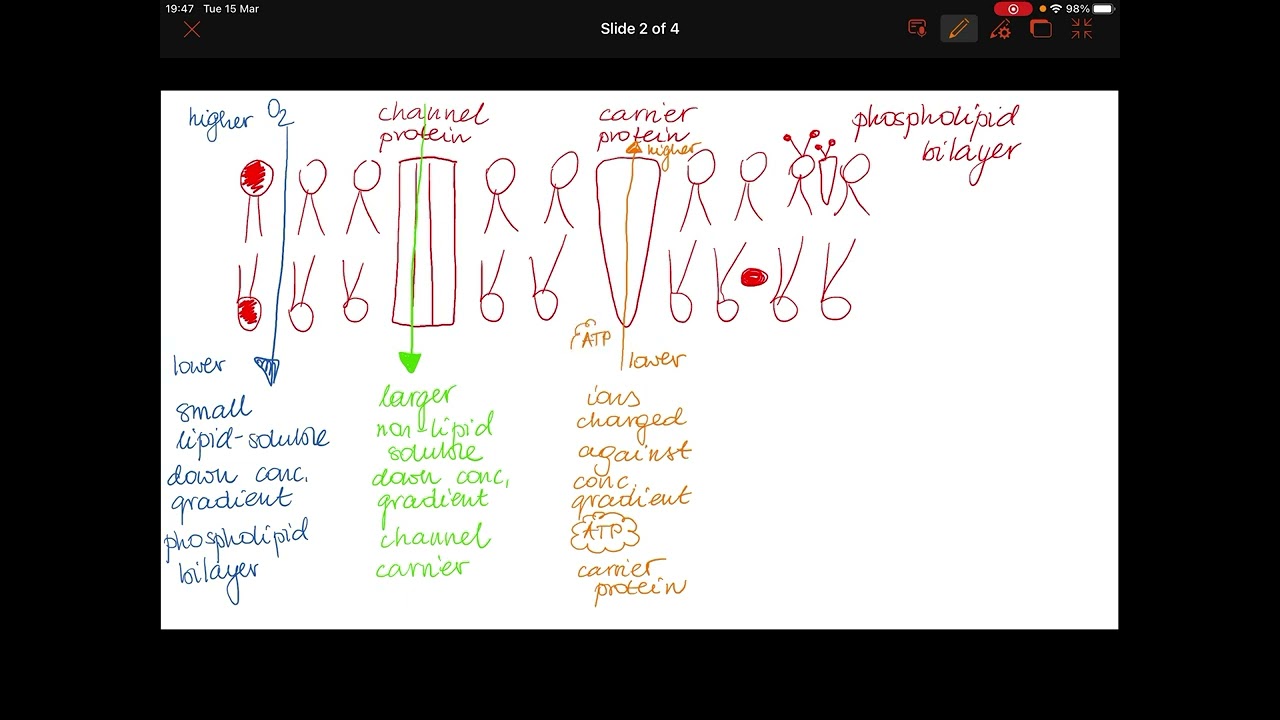 19:47 Tue 15 Mar
98%
Slide 2 of 4
higher O2
channel
protein
carrier
protein
higher
phospholipid
bilayer
ATP
lower
lower
small
lipid-soluble
down conc.
gradient
phospholipid
bilayer
larger
non-lipid
soluble
down conc.
gradient
channel
carrier
ions
charged
against
conc.
gradient
ATP
carrier
protein